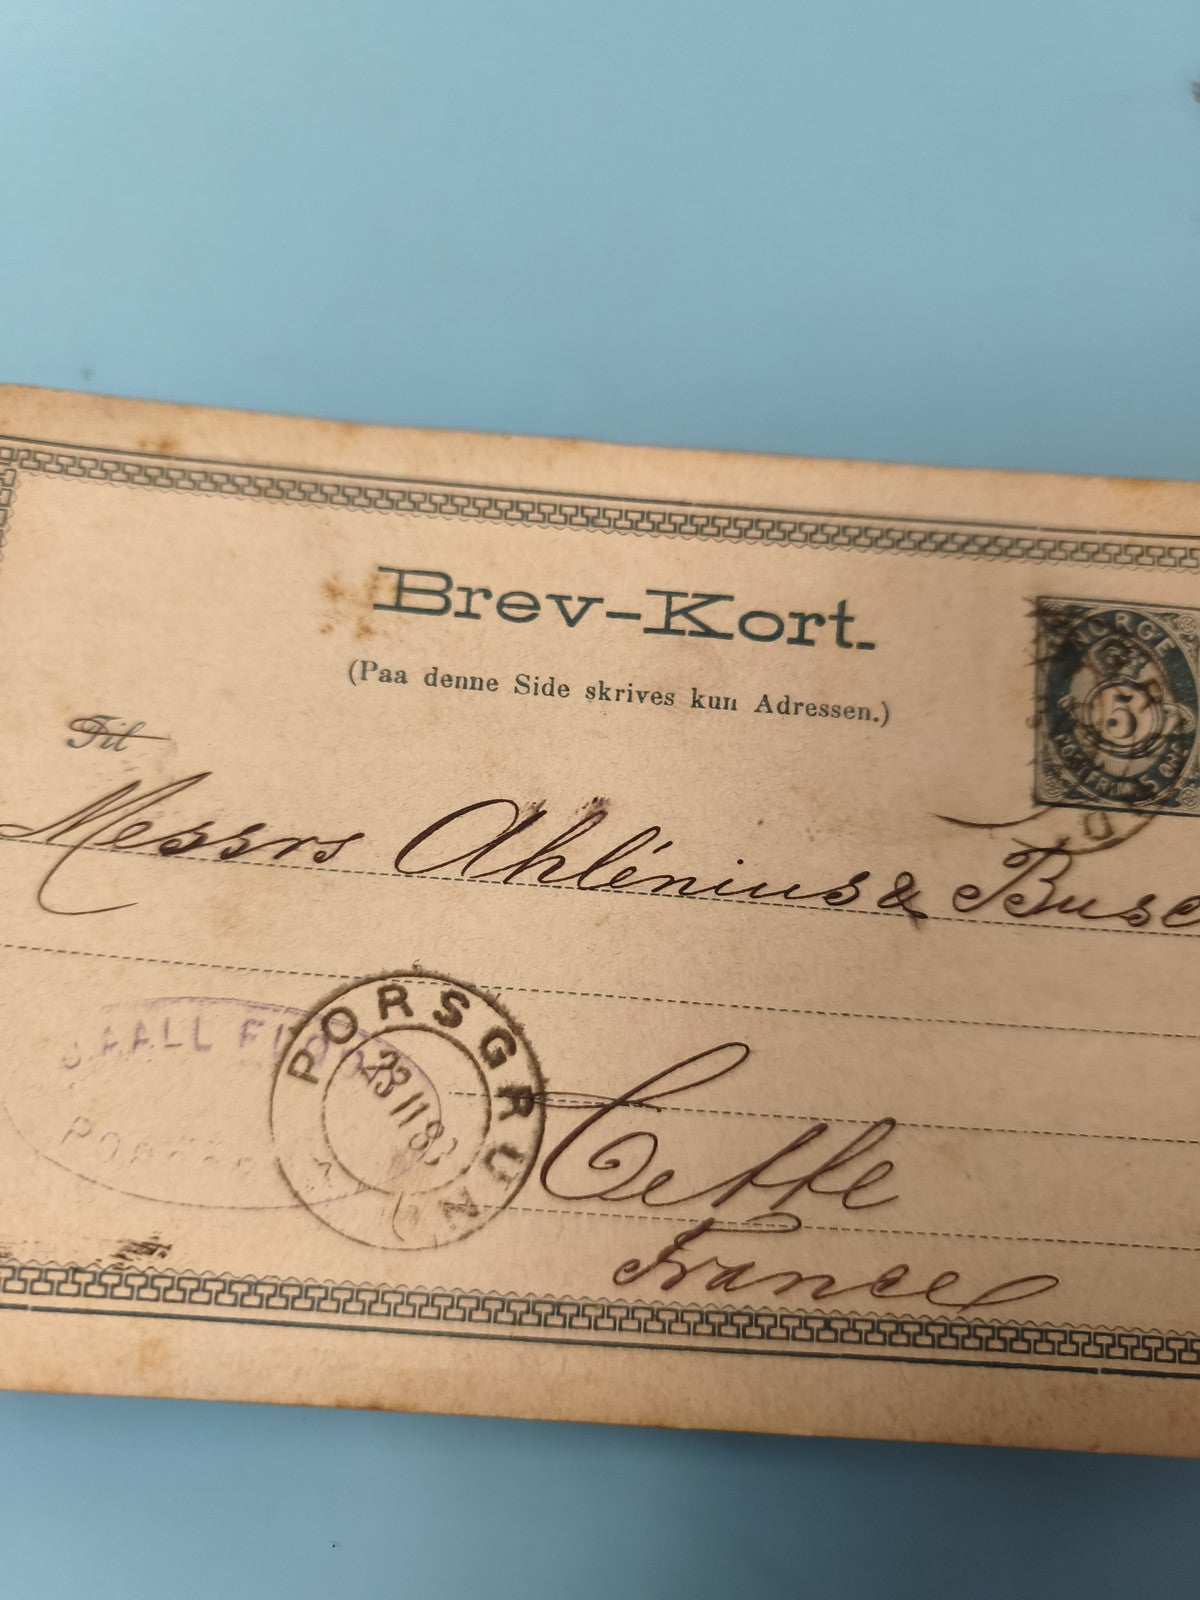 Brev-Kort.
(Paa denne Side skrives kun Adressen.)
NORGE
5
POSTFRIM. 5 ØRE
Til
Messrs Ahlénius & Buse
AALL
PORSGRUN
23 11 83
Cette
France